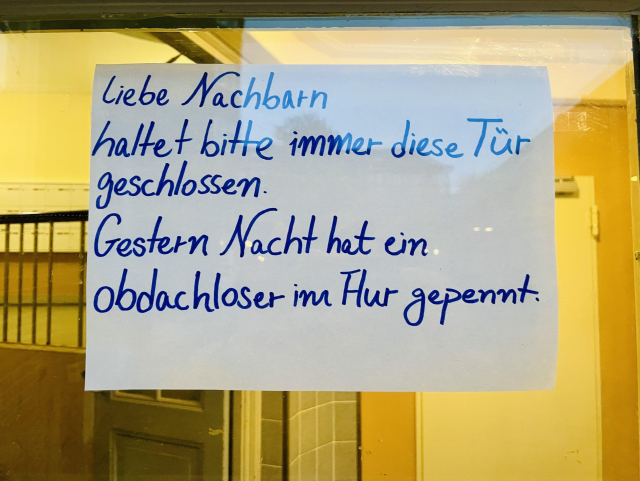 Liebe Nachbarn
haltet bitte immer diese Tür
geschlossen.
Gestern Nacht hat ein
obdachloser im Flur gepennt.